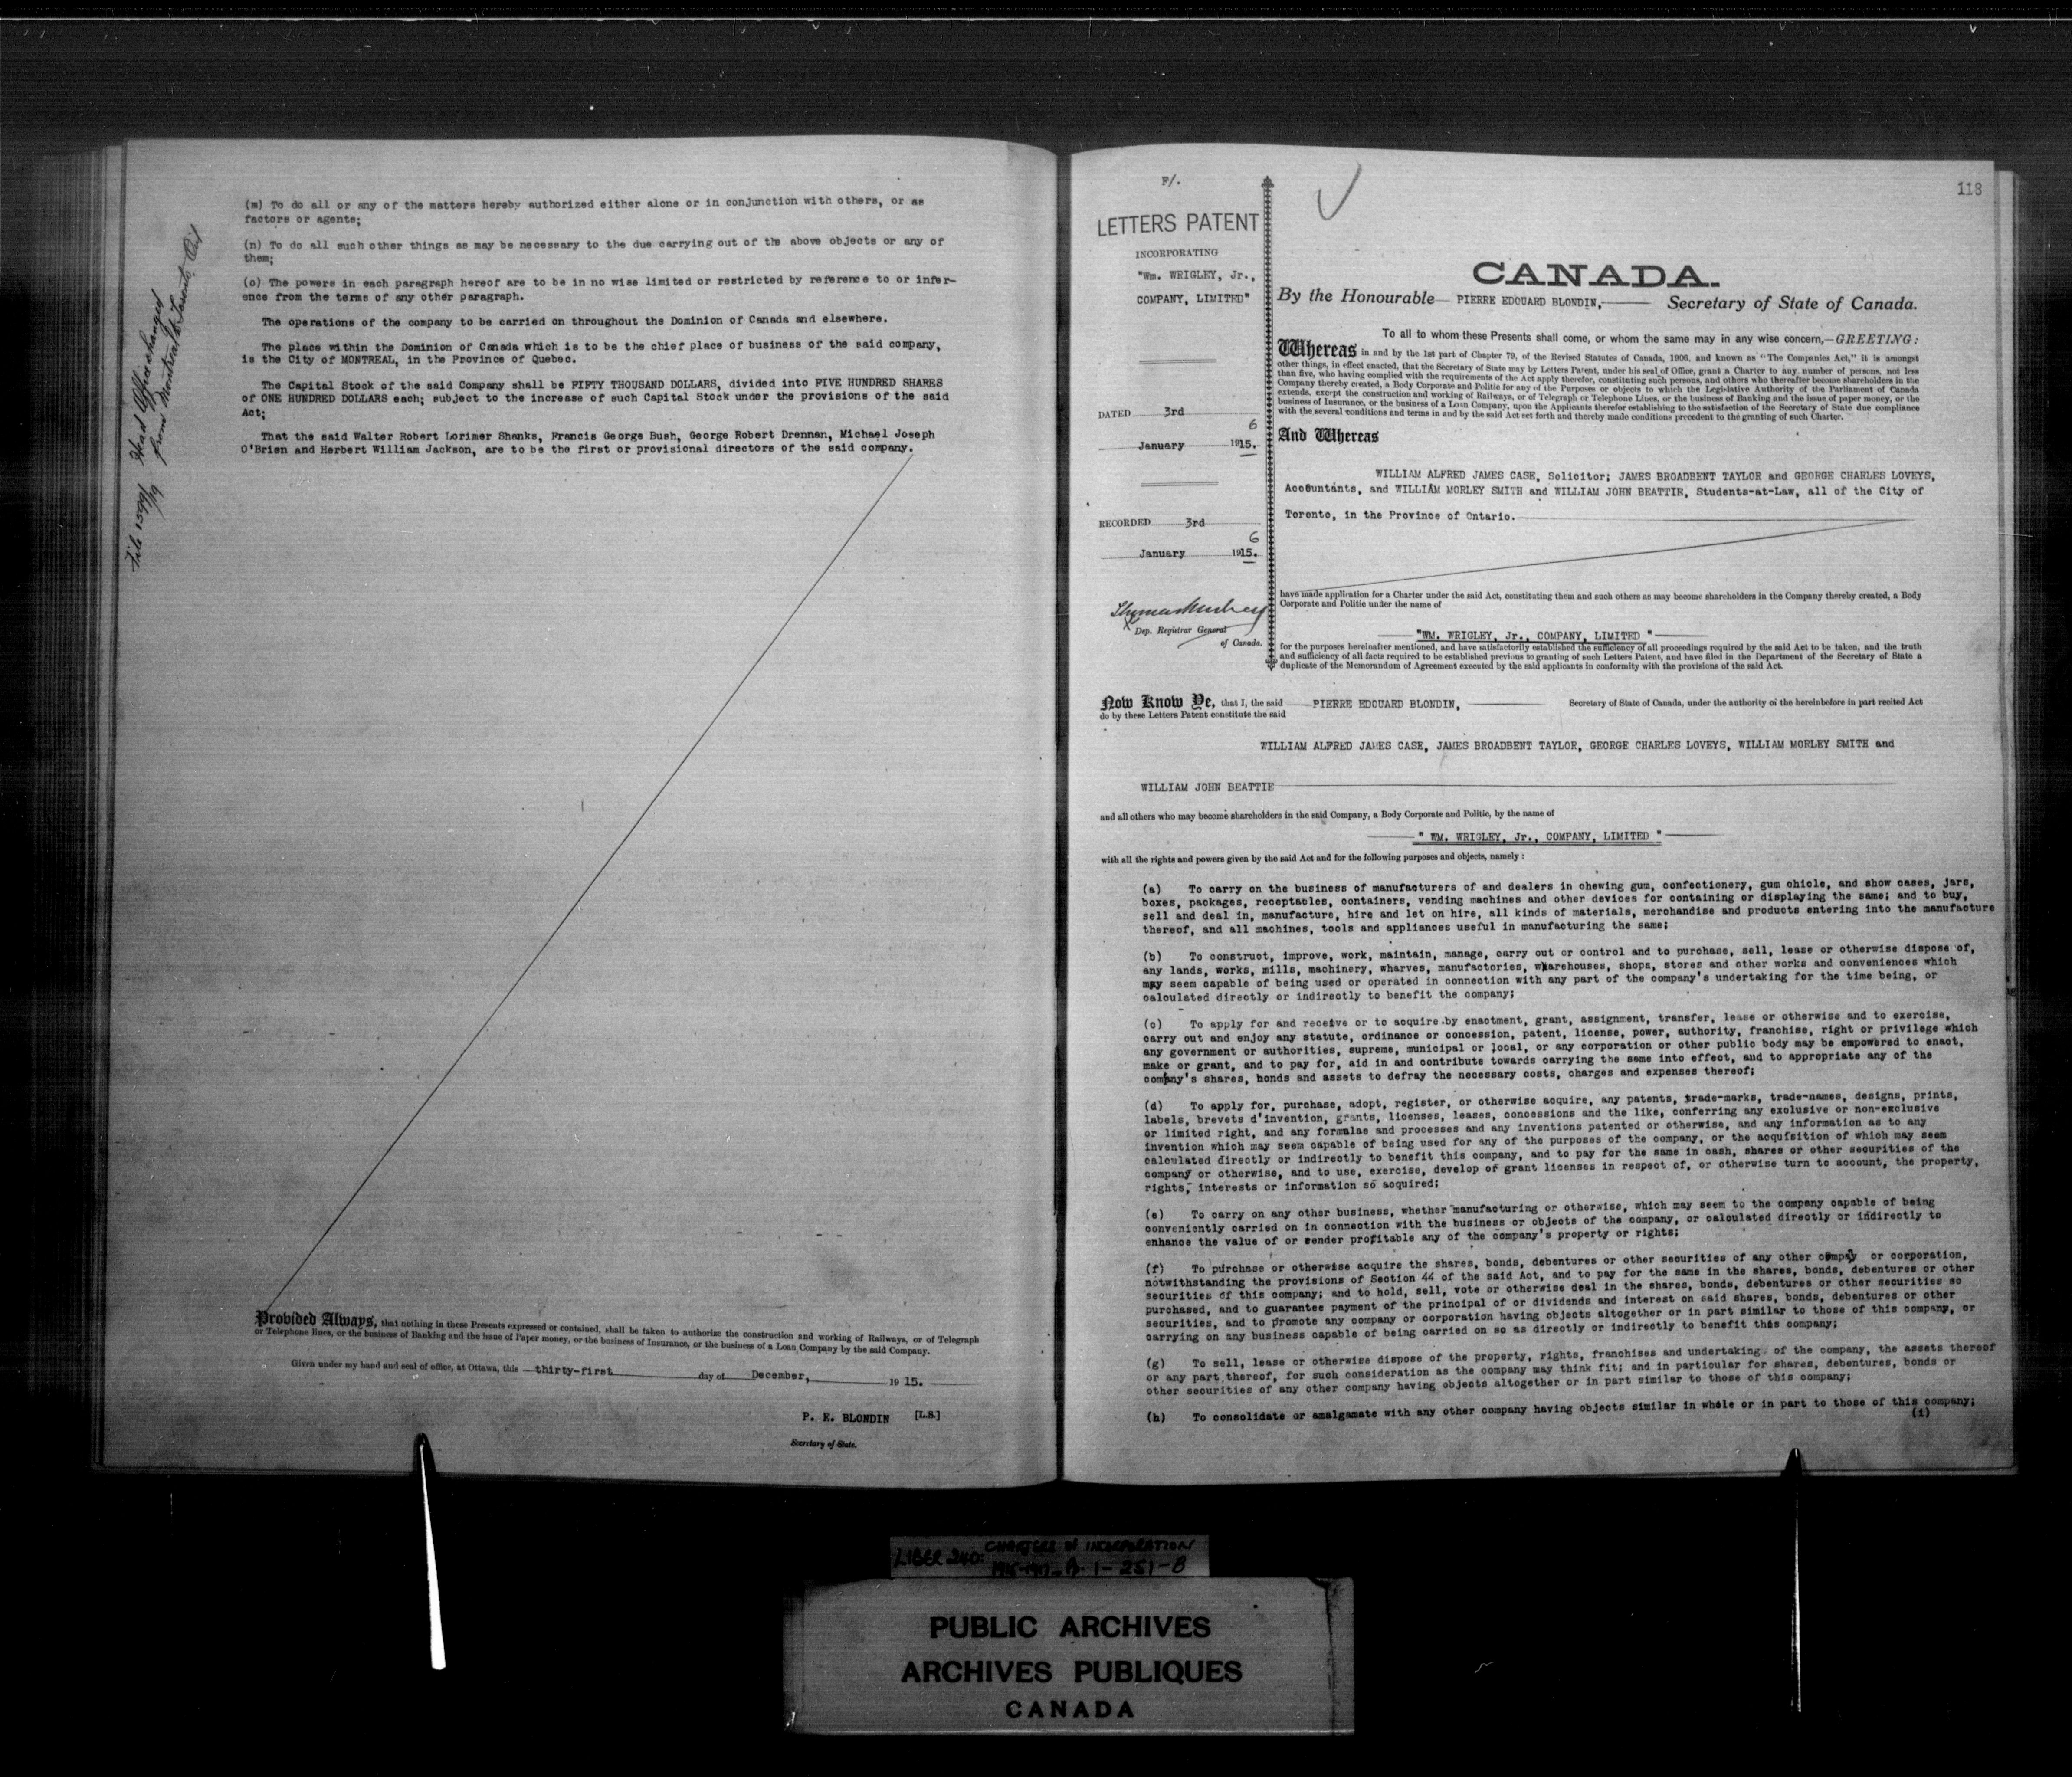 (m) To do all or any of the matters hereby authorized either alone or in conjunction with others, or as
factors or agents;
(n) To do all such other things as may be necessary to the due carrying out of the above objects or any of
them;
(o) The powers in each paragraph hereof are to be in no wise limited or restricted by reference to or infer-
ence from the terms of any other paragraph.
The operations of the company to be carried on throughout the Dominion of Canada and elsewhere.
The place within the Dominion of Canada which is to be the chief place of business of the said company,
is the City of MONTREAL, in the Province of Quebec.
The Capital Stock of the said Company shall be FIFTY THOUSAND DOLLARS, divided into FIVE HUNDRED SHARES
of ONE HUNDRED DOLLARS each; subject to the increase of such Capital Stock under the provisions of the said
Act;
That the said Walter Robert Lorimer Shanks, Francis George Bush, George Robert Drennan, Michael Joseph
O'Brien and Herbert William Jackson, are to be the first or provisional directors of the said company.
Head Office changed
from Montreal to Toronto, Ont
Provided Always, that nothing in these Presents expressed or contained, shall be taken to authorize the construction and working of Railways, or of Telegraph
or Telephone lines, or the business of Banking and the issue of Paper money, or the business of Insurance, or the business of a Loan Company by the said Company.
Given under my hand and seal of office, at Ottawa, this thirty-first day of December, 19 15.
P. E. BLONDIN [L.S.]
Secretary of State.
F/.
118
LETTERS PATENT
INCORPORATING
"Wm. WRIGLEY, Jr.,
COMPANY, LIMITED"
DATED 3rd
6
January 1915.
RECORDED 3rd
6
January 1915.
Dep. Registrar General
of Canada.
CANADA.
By the Honourable PIERRE EDOUARD BLONDIN, Secretary of State of Canada.
To all to whom these Presents shall come, or whom the same may in any wise concern,—GREETING:
Whereas in and by the 1st part of Chapter 79, of the Revised Statutes of Canada, 1906, and known as "The Companies Act," it is amongst
other things, in effect enacted, that the Secretary of State may by Letters Patent, under his seal of Office, grant a Charter to any number of persons, not less
than five, who having complied with the requirements of the Act apply therefor, constituting such persons, and others who thereafter become shareholders in the
Company thereby created, a Body Corporate and Politic for any of the Purposes or objects to which the Legislative Authority of the Parliament of Canada
extends, except the construction and working of Railways, or of Telegraph or Telephone Lines, or the business of Banking and the issue of paper money, or the
business of Insurance, or the business of a Loan Company, upon the Applicants therefor establishing to the satisfaction of the Secretary of State due compliance
with the several conditions and terms in and by the said Act set forth and thereby made conditions precedent to the granting of such Charter.
And Whereas
WILLIAM ALFRED JAMES CASE, Solicitor; JAMES BROADBENT TAYLOR and GEORGE CHARLES LOVEYS,
Accountants, and WILLIAM MORLEY SMITH and WILLIAM JOHN BEATTIE, Students-at-Law, all of the City of
Toronto, in the Province of Ontario.
have made application for a Charter under the said Act, constituting them and such others as may become shareholders in the Company thereby created, a Body
Corporate and Politic under the name of
"WM. WRIGLEY, Jr., COMPANY, LIMITED "
for the purposes hereinafter mentioned, and have satisfactorily established the sufficiency of all proceedings required by the said Act to be taken, and the truth
and sufficiency of all facts required to be established previous to granting of such Letters Patent, and have filed in the Department of the Secretary of State a
duplicate of the Memorandum of Agreement executed by the said applicants in conformity with the provisions of the said Act.
Now Know Ye, that I, the said PIERRE EDOUARD BLONDIN, Secretary of State of Canada, under the authority of the hereinbefore in part recited Act
do by these Letters Patent constitute the said
WILLIAM ALFRED JAMES CASE, JAMES BROADBENT TAYLOR, GEORGE CHARLES LOVEYS, WILLIAM MORLEY SMITH and
WILLIAM JOHN BEATTIE
and all others who may become shareholders in the said Company, a Body Corporate and Politic, by the name of
" WM. WRIGLEY, Jr., COMPANY, LIMITED "
with all the rights and powers given by the said Act and for the following purposes and objects, namely :
(a) To carry on the business of manufacturers of and dealers in chewing gum, confectionery, gum chicle, and show cases, jars,
boxes, packages, receptacles, containers, vending machines and other devices for containing or displaying the same; and to buy,
sell and deal in, manufacture, hire and let on hire, all kinds of materials, merchandise and products entering into the manufacture
thereof, and all machines, tools and appliances useful in manufacturing the same;
(b) To construct, improve, work, maintain, manage, carry out or control and to purchase, sell, lease or otherwise dispose of,
any lands, works, mills, machinery, wharves, manufactories, warehouses, shops, stores and other works and conveniences which
may seem capable of being used or operated in connection with any part of the company's undertaking for the time being, or
calculated directly or indirectly to benefit the company;
(c) To apply for and receive or to acquire by enactment, grant, assignment, transfer, lease or otherwise and to exercise,
carry out and enjoy any statute, ordinance or concession, patent, license, power, authority, franchise, right or privilege which
any government or authorities, supreme, municipal or local, or any corporation or other public body may be empowered to enact,
make or grant, and to pay for, aid in and contribute towards carrying the same into effect, and to appropriate any of the
company's shares, bonds and assets to defray the necessary costs, charges and expenses thereof;
(d) To apply for, purchase, adopt, register, or otherwise acquire, any patents, trade-marks, trade-names, designs, prints,
labels, brevets d'invention, grants, licenses, leases, concessions and the like, conferring any exclusive or non-exclusive
or limited right, and any formulae and processes and any inventions patented or otherwise, and any information as to any
invention which may seem capable of being used for any of the purposes of the company, or the acquisition of which may seem
calculated directly or indirectly to benefit this company, and to pay for the same in cash, shares or other securities of the
company or otherwise, and to use, exercise, develop of grant licenses in respect of, or otherwise turn to account, the property,
rights, interests or information so acquired;
(e) To carry on any other business, whether manufacturing or otherwise, which may seem to the company capable of being
conveniently carried on in connection with the business or objects of the company, or calculated directly or indirectly to
enhance the value of or render profitable any of the company's property or rights;
(f) To purchase or otherwise acquire the shares, bonds, debentures or other securities of any other compay or corporation,
notwithstanding the provisions of Section 44 of the said Act, and to pay for the same in the shares, bonds, debentures or other
securities of this company; and to hold, sell, vote or otherwise deal in the shares, bonds, debentures or other securities so
purchased, and to guarantee payment of the principal of or dividends and interest on said shares, bonds, debentures or other
securities, and to promote any company or corporation having objects altogether or in part similar to those of this company, or
carrying on any business capable of being carried on so as directly or indirectly to benefit this company;
(g) To sell, lease or otherwise dispose of the property, rights, franchises and undertaking of the company, the assets thereof
or any part thereof, for such consideration as the company may think fit; and in particular for shares, debentures, bonds or
other securities of any other company having objects altogether or in part similar to those of this company;
(h) To consolidate or amalgamate with any other company having objects similar in whole or in part to those of this company;
(i)
LIBER 240: CHARTERS of INCORPORATION
1-251-B
PUBLIC ARCHIVES
ARCHIVES PUBLIQUES
CANADA